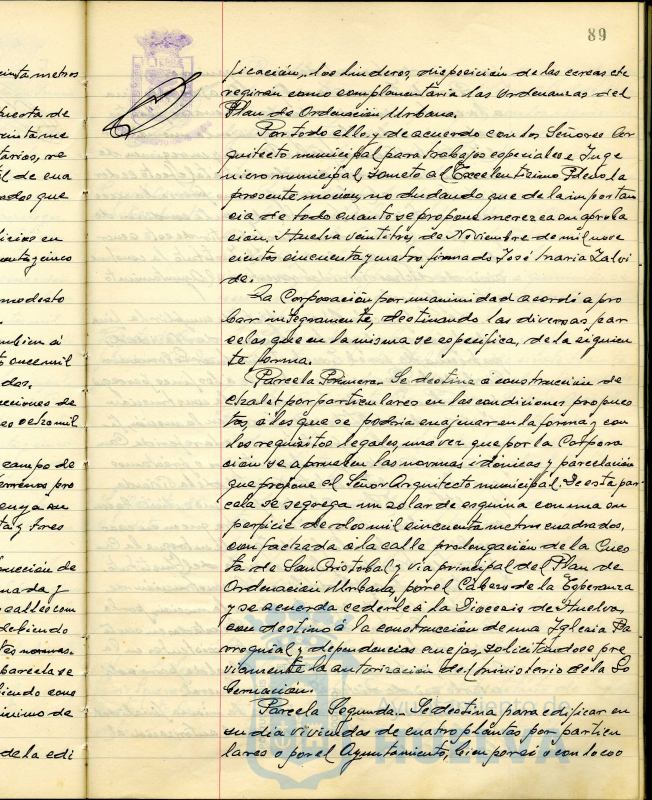 89
ficación, los linderos, disposición de las cercas etc
regirán como complementaria las ordenanzas del
Plan de Ordenación Urbana.
Por todo ello, y de acuerdo con los Señores Ar
quitecto municipal para trabajos especiales e Inge
niero municipal, someto al Excelentísimo Pleno la
presente moción, no dudando que de la importan
cia de todo cuanto se propone merezca su aproba
ción. Huelva veintitres de Noviembre de mil nove
cientos cincuenta y cuatro firmado José María Zalvi
de.
La Corporación por unanimidad acordó a pro
bar integramente, destinando las diversas par
celas que en la misma se especifica, de la siguien
te forma.
Parcela Primera. Se destina a construcción de
chalet por particulares en las condiciones propues
tas, a los que se podría enajenar en la forma y con
los requisitos legales, una vez que por la Corpora
ción se aprueben las normas idóneas y parcelación
que propone el Señor Arquitecto municipal. De esta par
cela se segrega un solar de esquina con una su
perficie de dos mil cincuenta metros cuadrados,
con fachada a la calle prolongación de la Cues
ta de San Cristobal y vía principal del Plan de
Ordenación Urbana, por el Cabezo de la Esperanza
y se acuerda cederle a la Diocesis de Huelva,
con destino á la construcción de una Iglesia Pa
rroquial y dependencias anejas, solicitándose pre
viamente la autorización del Ministerio de la Go
bernación.
Parcela Segunda. Se destina para edificar en
su día viviendas de cuatro plantas por particu
lares o por el Ayuntamiento, bien por sí o con la coo